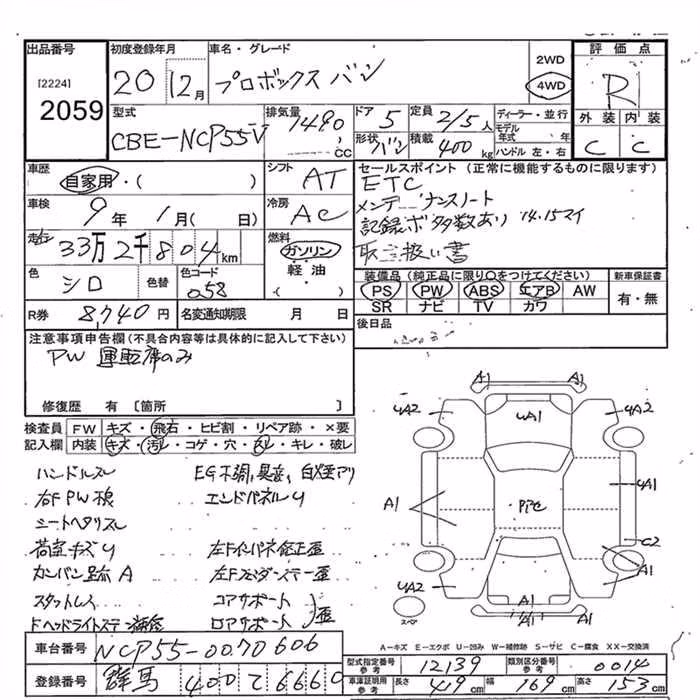 出品番号 初度登録年月 車名・グレード 2WD 評価点
[2224] 2059 20 12月 プロボックス バン 4WD R
型式 排気量 ドア 定員 ディーラー・並行 外装 内装
CBE-NCP55V 1490 cc 5 2/5人 モデル年式 年 C C
形状 バン 積載 400 kg ハンドル 左・右
車歴 シフト セールスポイント(正常に機能するものに限ります)
自家用・( ) AT ETC
車検 冷房 メンテナンスノート
9年 1月( 日) AC 記録ボ多数あり 14.15マイ
走行 燃料
33万2千804km ガソリン 取扱い書
色 色替 色コード 軽油 装備品(純正品に限り○をつけてください) 新車保証書
シロ 058 ( ) PS PW ABS エアB AW 有・無
SR ナビ TV カワ
R券 8,740円 名変通知期限 月 日
後日品
注意事項申告欄(不具合内容等は具体的に記入して下さい)
PW 運転席のみ
修復歴 有〔箇所 〕
検査員 FW キズ・飛石・ヒビ割・リペア跡・×要
記入欄 内装 キズ・汚レ・コゲ・穴・スレ・キレ・破レ
ハンドルスレ EG不調,異音,白煙アリ
右F PW 検 エンドパネルU
シートヘタリスレ
荷室キズU 左Fインパネ修正歪
カンバン跡A 左Fフェンダーステー歪
スタットレス コアサポート
ロアサポート 歪
車台番号 NCP55-0070606
登録番号 群馬 400 て 6660
A1 A1
4A2 4A1 4A2
A1 アトC 4A1
C2
4A2 4A2
スペア A1 A1
A-キズ E-エクボ U-凹み W-補修跡 S-サビ C-腐食 XX-交換済
型式指定番号 参考 12139 類別区分番号 参考 0014
車検証明用 参考 長さ 419cm 幅 169cm 高さ 153cm